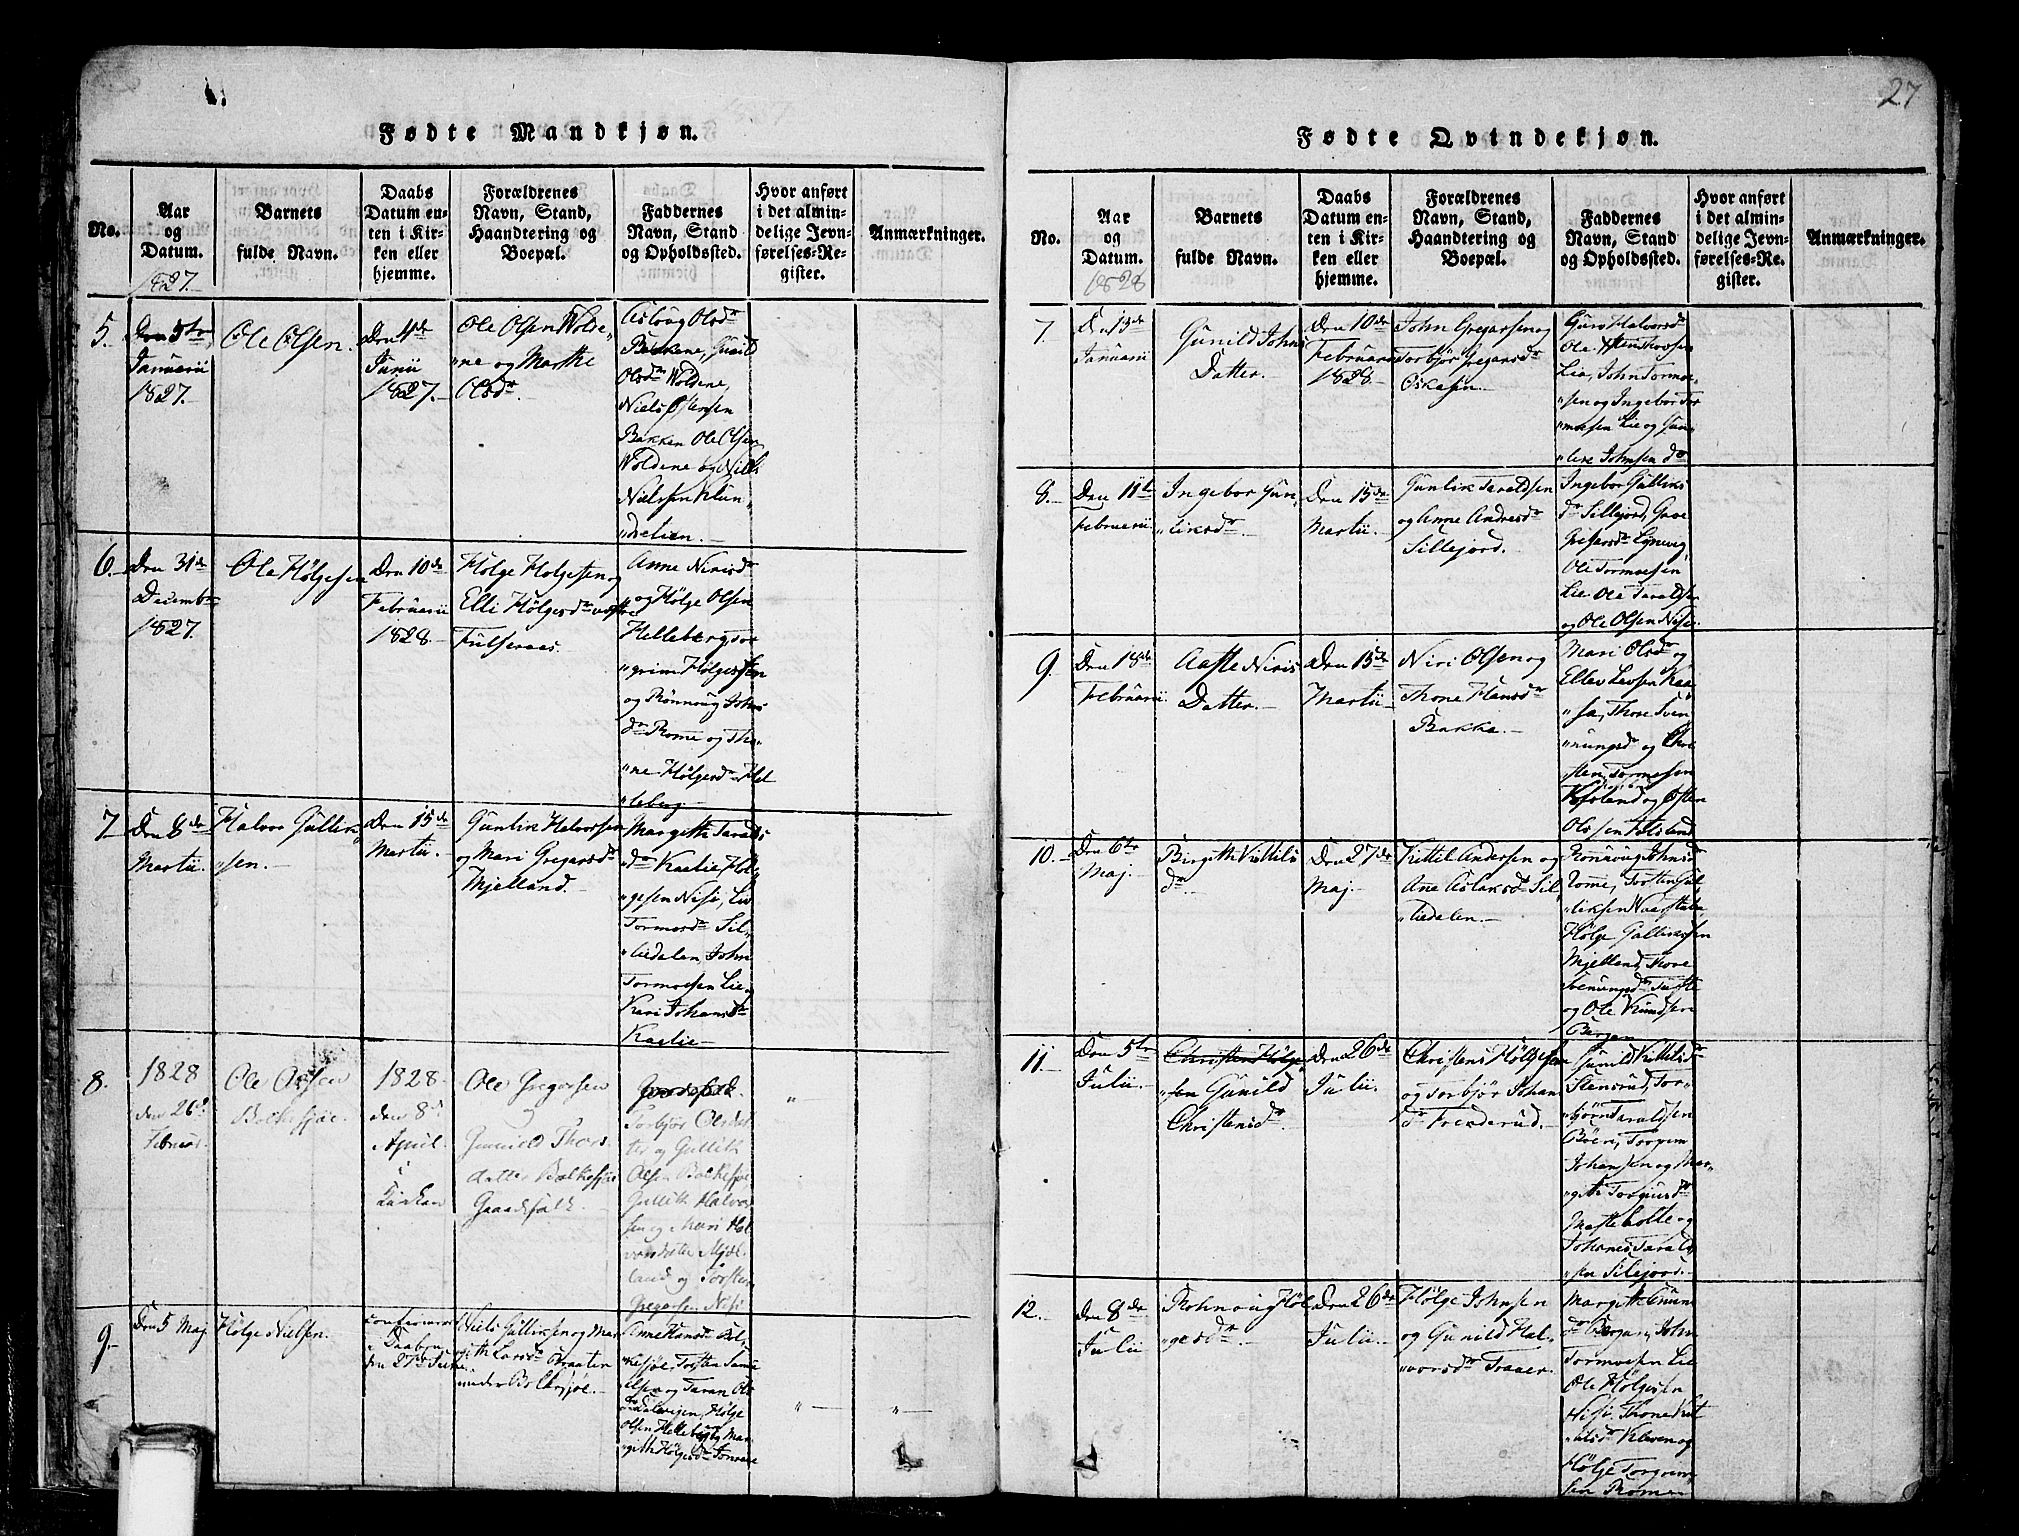 27
Fødte Mandkjøn.
No.
Aar
og
Datum.
1827.
Barnets
fulde Navn.
Daabs
Datum en-
ten i Kir-
ken eller
hjemme.
Forældrenes
Navn, Stand,
Haandtering og
Boepæl.
Faddernes
Navn, Stand
og Opholdssted.
Hvor anført
i det almin-
delige Jevn-
førelses-Re-
gister.
Anmærkninger.
5.
Den 5te
Januarii
1827.
Ole Olsen.
Den 4de
Junii
1827.
Ole Olsen Wolde
"ne og Marthe
Olsdr
Aslaug Olsdr
Bakkene, Gunild
Olsdr Woldene,
Niels
Bakken Ole Olsen
Woldene og Niels
Nielsen Klun
"delien.
6.
Den 31de
Decembr
1827.
Ole Hølgesen
Den 10de
Februarii
1828.
Hølge Holgesen og
Elli Hølgesdr
Fulseraas
Anne Nirisdr
og Hølge Olsen
Helleberg Tor
"grim Hølgessen
og Rönnoug Johns
dr Rome og Tho
"ne Hølgesdr Hel
"leberg
7
Den 8de
Martii.
Halvor Gullik
"sen.
Den 15de
Martii.
Gunlik Halvorsen
og Mari Gregarsdr
Mjelland.
Margith Taralds
dr Kaalie, Høl
"gesen Nisi, Liv
Tormosdr Sil
"liedalen, John
Tormoesen Lie
Kari Johansdr
Kaalie
8.
1828
den 26d
Februar.
Ole Olsen
Bolkesjøe.
1828.
den 8d
April
i
Kirken
Ole Gregarsen
og
Gunnild Thors
datter Bolkesjøe
Gaardfolk.
Gaardfolk.
Torbjør Olsdat
ter og Gullik
Olsen Bolkesjøe
Gullik Halvor
sen og Mari Hal
vorsdatter Mjæl
land og Torsten
Gregersen Nisi
9.
Den 5 Maj
Hølge Nielsen.
Confirmeret
Daaben
den 27de June.
Niels Gulliksen og Mar
gith Larsdr Braaten
under Bolkesjøe.
Anne Hansdr Bol
"kesjøe Torsten
og Taran Ols
dr Hølge
Olsen Helleberg og Mar
"gith Hølgesdr
Fødte Qvindekjøn.
No.
Aar
og
Datum.
1828
Barnets
fulde Navn.
Daabs
Datum en-
ten i Kir-
ken eller
hjemme.
Forældrenes
Navn, Stand,
Haandtering og
Boepæl.
Faddernes
Navn, Stand
og Opholdssted.
Hvor anført
i det almin-
delige Jevn-
førelses-Re-
gister.
Anmærkninger.
7.
Den 13de
Januarii
Gunild Johns
Datter.
Den 10de
Februarii
1828.
John Gregarsen og
Torbjør Gregarsdr
Oskasen.
Guro Halvorsdr
Ole
Lia, John Tormoe
"sen og Ingebor Tor
"moesen Lie og Gun
"lek Johnsen dr
8.
Den 11te
Februarii
Ingebor Gun
"leiksdr
Den 15de
Martii.
Gunlik Taraldsen
og Anne Andresdr
Sillejord.
Ingebor Gulliks
dr Sillejord, Gave
Gregarsdr
Ole Tormoesen
Lie Ole Taraldsen
og Ole Olsen Nise
9.
Den 18de
Februarii
Aaste Niris
Datter.
Den 15de
Martii
Niri Olsen og
Thone Hansdr
Bakka.
Mari Olsdr og
Ellev Levsen Kaa
"sa, Thore Sven
"nungsdr og Chri
sten Tormoesen
og Østen
Olssen
10.
Den 6te
Maj.
Birgith Kittils
dr
Den 27de
Maj.
Kittil Andersen og
Ane Aslaksdr Sil
"liedalen.
Ronnoug Johnsdr
Rome, Torsten Gul
"liksen
Hølge Gulliksen
Mjelland, Thore
Svenungsdr
og Ole Knudsen
Bergan
11.
Den 5te
Julii.
Christen Hølge
"sen Gunild
Christensdr
Den 26de
Julii.
Christen Hølgesen
og Torbjør Johan
dr Frenderud.
Gunild Kittilsdr
Stensrud, Tor
"bjørn Taraldsen
Böen, Torgrim
Johansen og Mar
"gith Torgiusdr
og
Johannes Tarald
sen Silejord.
12.
Den 8de
Julii
Rohnoug Høl
"gesdr
Den 26de
Julii
Hølge Johnsen
og Gunild Hal
"vorsdr Traaer.
Margith Gunn
dr Bergan, John
Tormoesen Lie
Ole Hølgesen
Nisi, Thone Kit
"tilsdr Kleven og
Hølge Torgrim
sen Rome